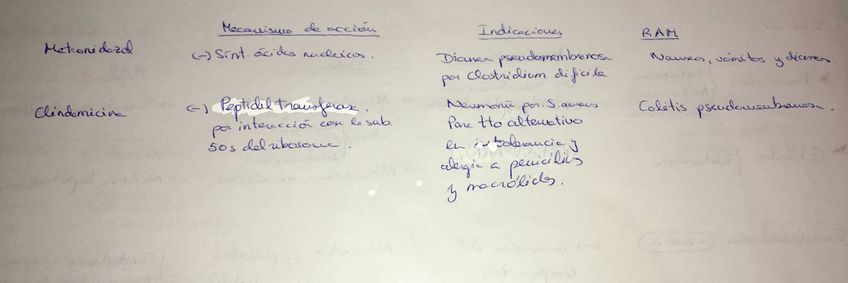 Mecanismo de acción Indicaciones RAM
Metronidazol (-) Sínt. ácidos nucleicos. Diarrea pseudomembranosa Nauseas, vómitos y diarrea
por Clostridium difícile
Clindamicina (-) Peptidil transferasa. Neumonía por S. aureus Colitis pseudomembranosa.
por interacción con la sub. Para tto alternativo
50s del ribosoma. en intolerancia y
alergia a penicilinas
y macrólidos.